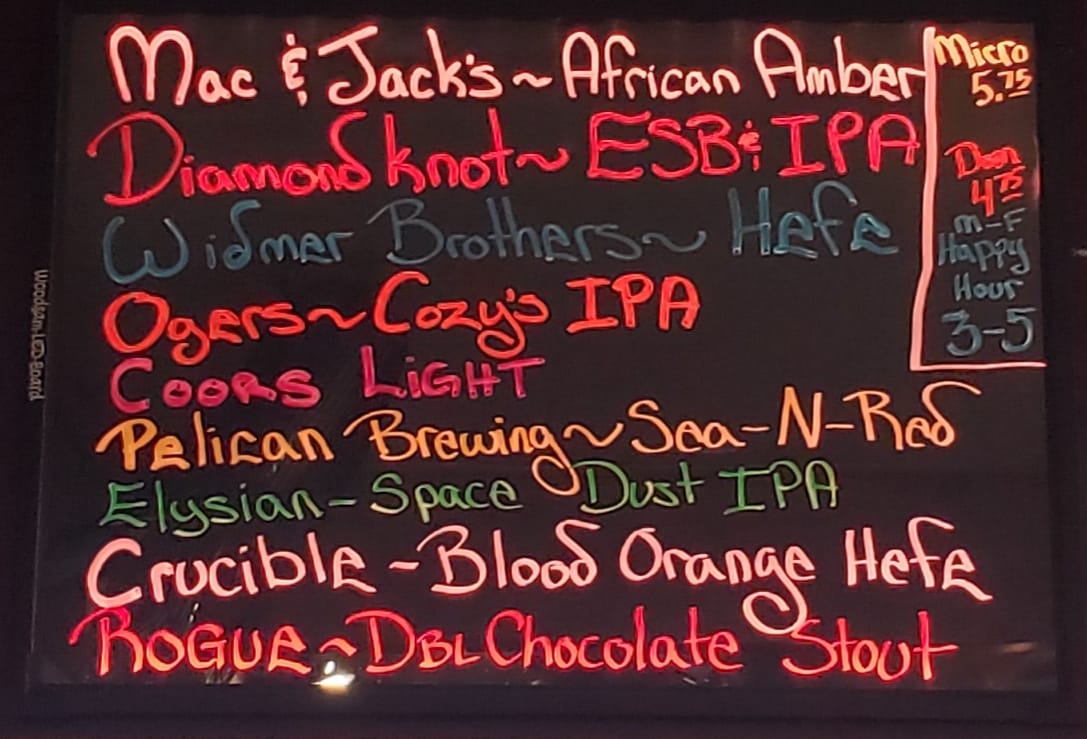 Mac & Jack's ~ African Amber
Diamond Knot ~ ESB & IPA
Widmer Brothers ~ Hefe
Ogers ~ Cozy's IPA
Coors LiGHT
Pelican Brewing ~ Sea-N-Red
Elysian - Space Dust IPA
Crucible ~ Blood Orange Hefe
ROGUE ~ DBL Chocolate Stout
Micro
5.75
Dom
4.75
M-F
Happy
Hour
3-5
Woodsam LED Board